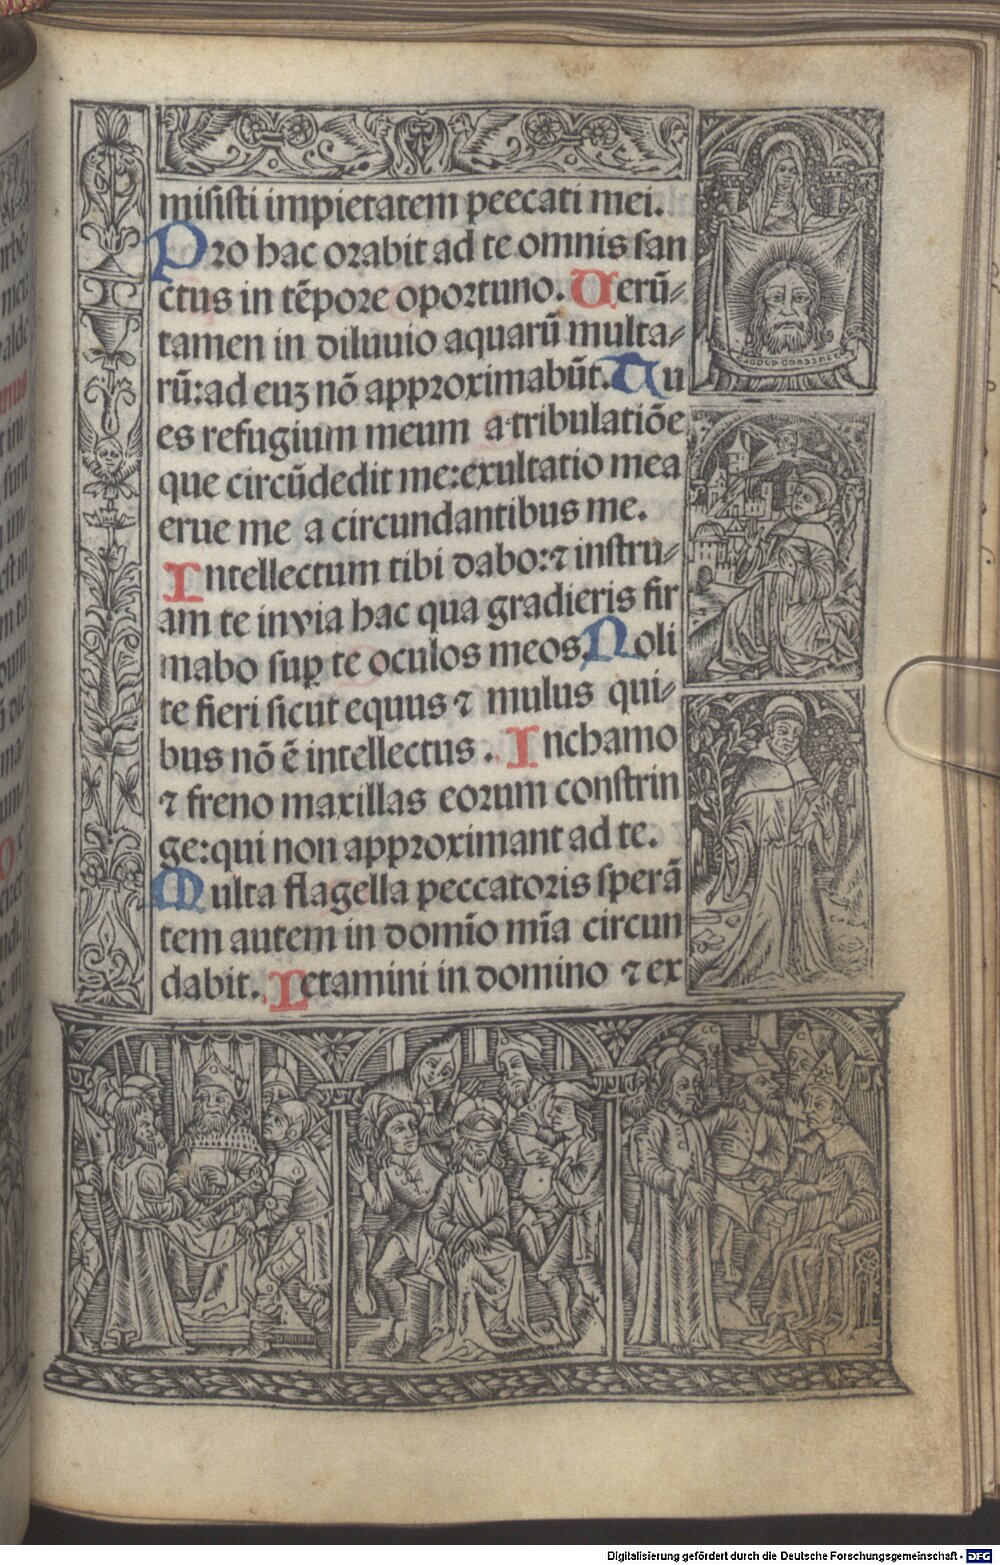 misisti impietatem peccati mei.
Pro hac orabit ad te omnis san
ctus in tēpore oportuno. Uerū⸗
tamen in diluuio aquarū multa⸗
rū: ad euʒ nō approximabūt. Tu
es refugium meum a tribulatiōe
que circūdedit me: exultatio mea
erue me a circundantibus me.
Intellectum tibi dabo: ⁊ instru⸗
am te in via hac qua gradieris fir
mabo sup̱ te oculos meos. Noli
te fieri sicut equus ⁊ mulus qui⸗
bus nō ē intellectus. In chamo
⁊ freno maxillas eorum constrin
ge: qui non approximant ad te.
Multa flagella peccatoris sperā
tem autem in domīo mīa circun
dabit. Letamini in domino ⁊ ex
Digitalisierung gefördert durch die Deutsche Forschungsgemeinschaft - DFG